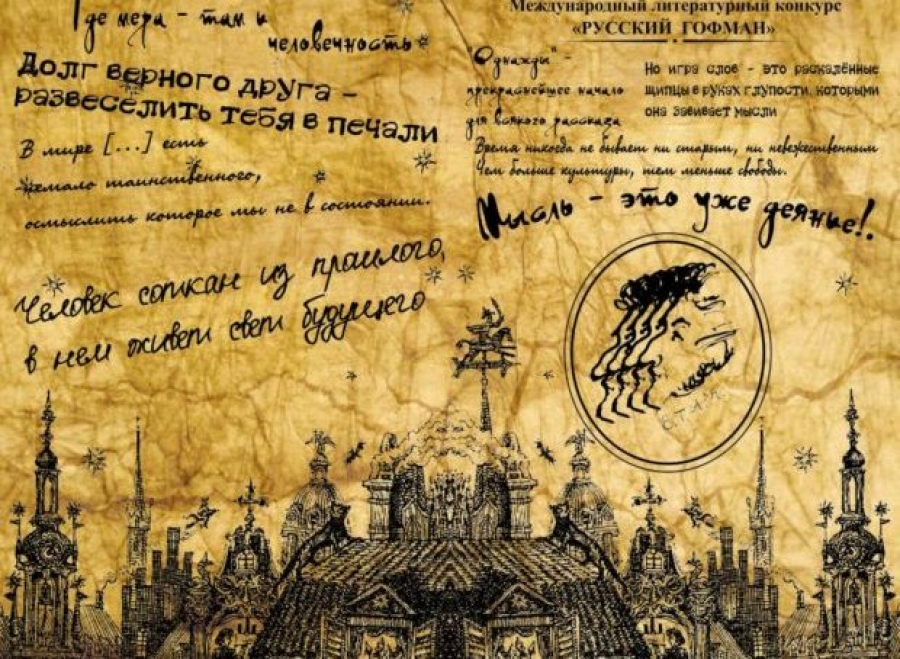 Где мера - там и
человечность
Долг верного друга -
развеселить тебя в печали
В мире [...] есть
немало таинственного,
осмыслить которое мы не в состоянии.
Человек соткан из прошлого,
в нем живет свет будущего
Международный литературный конкурс
«РУССКИЙ ГОФМАН»
"Однажды" -
прекраснейшее начало
для всякого рассказа
Но игра слов - это раскалённые
щипцы в руках глупости, которыми
она завивает мысли
Время никогда не бывает ни старым, ни невежественным
Чем больше культуры, тем меньше свободы.
Мысль - это уже деяние!.